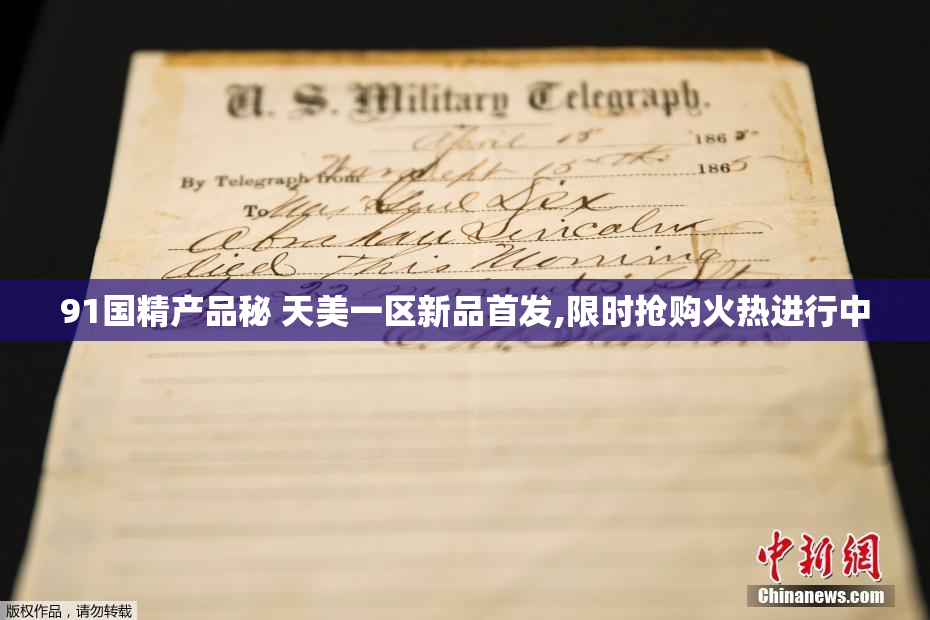 U. S. Military Telegraph.
April 15 1865
By Telegraph from War Dept 15th 1865
To Maj Genl Dix
Abraham Lincoln
died This Morning
at 22 minutes after
91国精产品秘 天美一区新品首发,限时抢购火热进行中
中新网
Chinanews.com
版权作品，请勿转载